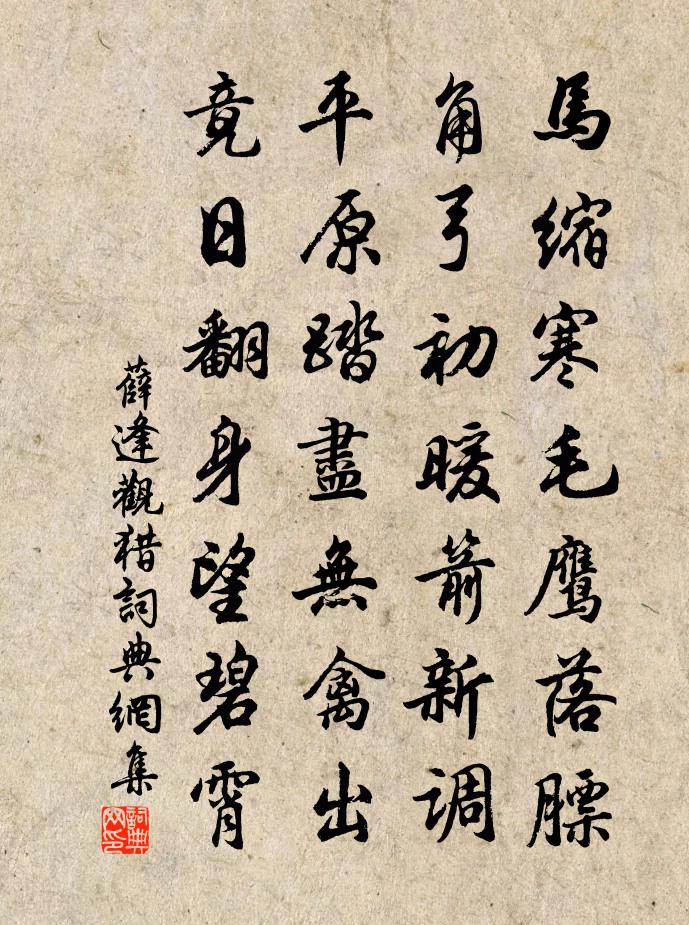 馬縮寒毛鷹落膘
角弓初暖箭新調
平原踏盡無禽出
竟日翻身望碧霄
薛逢觀猎詞典網集
詞典网印